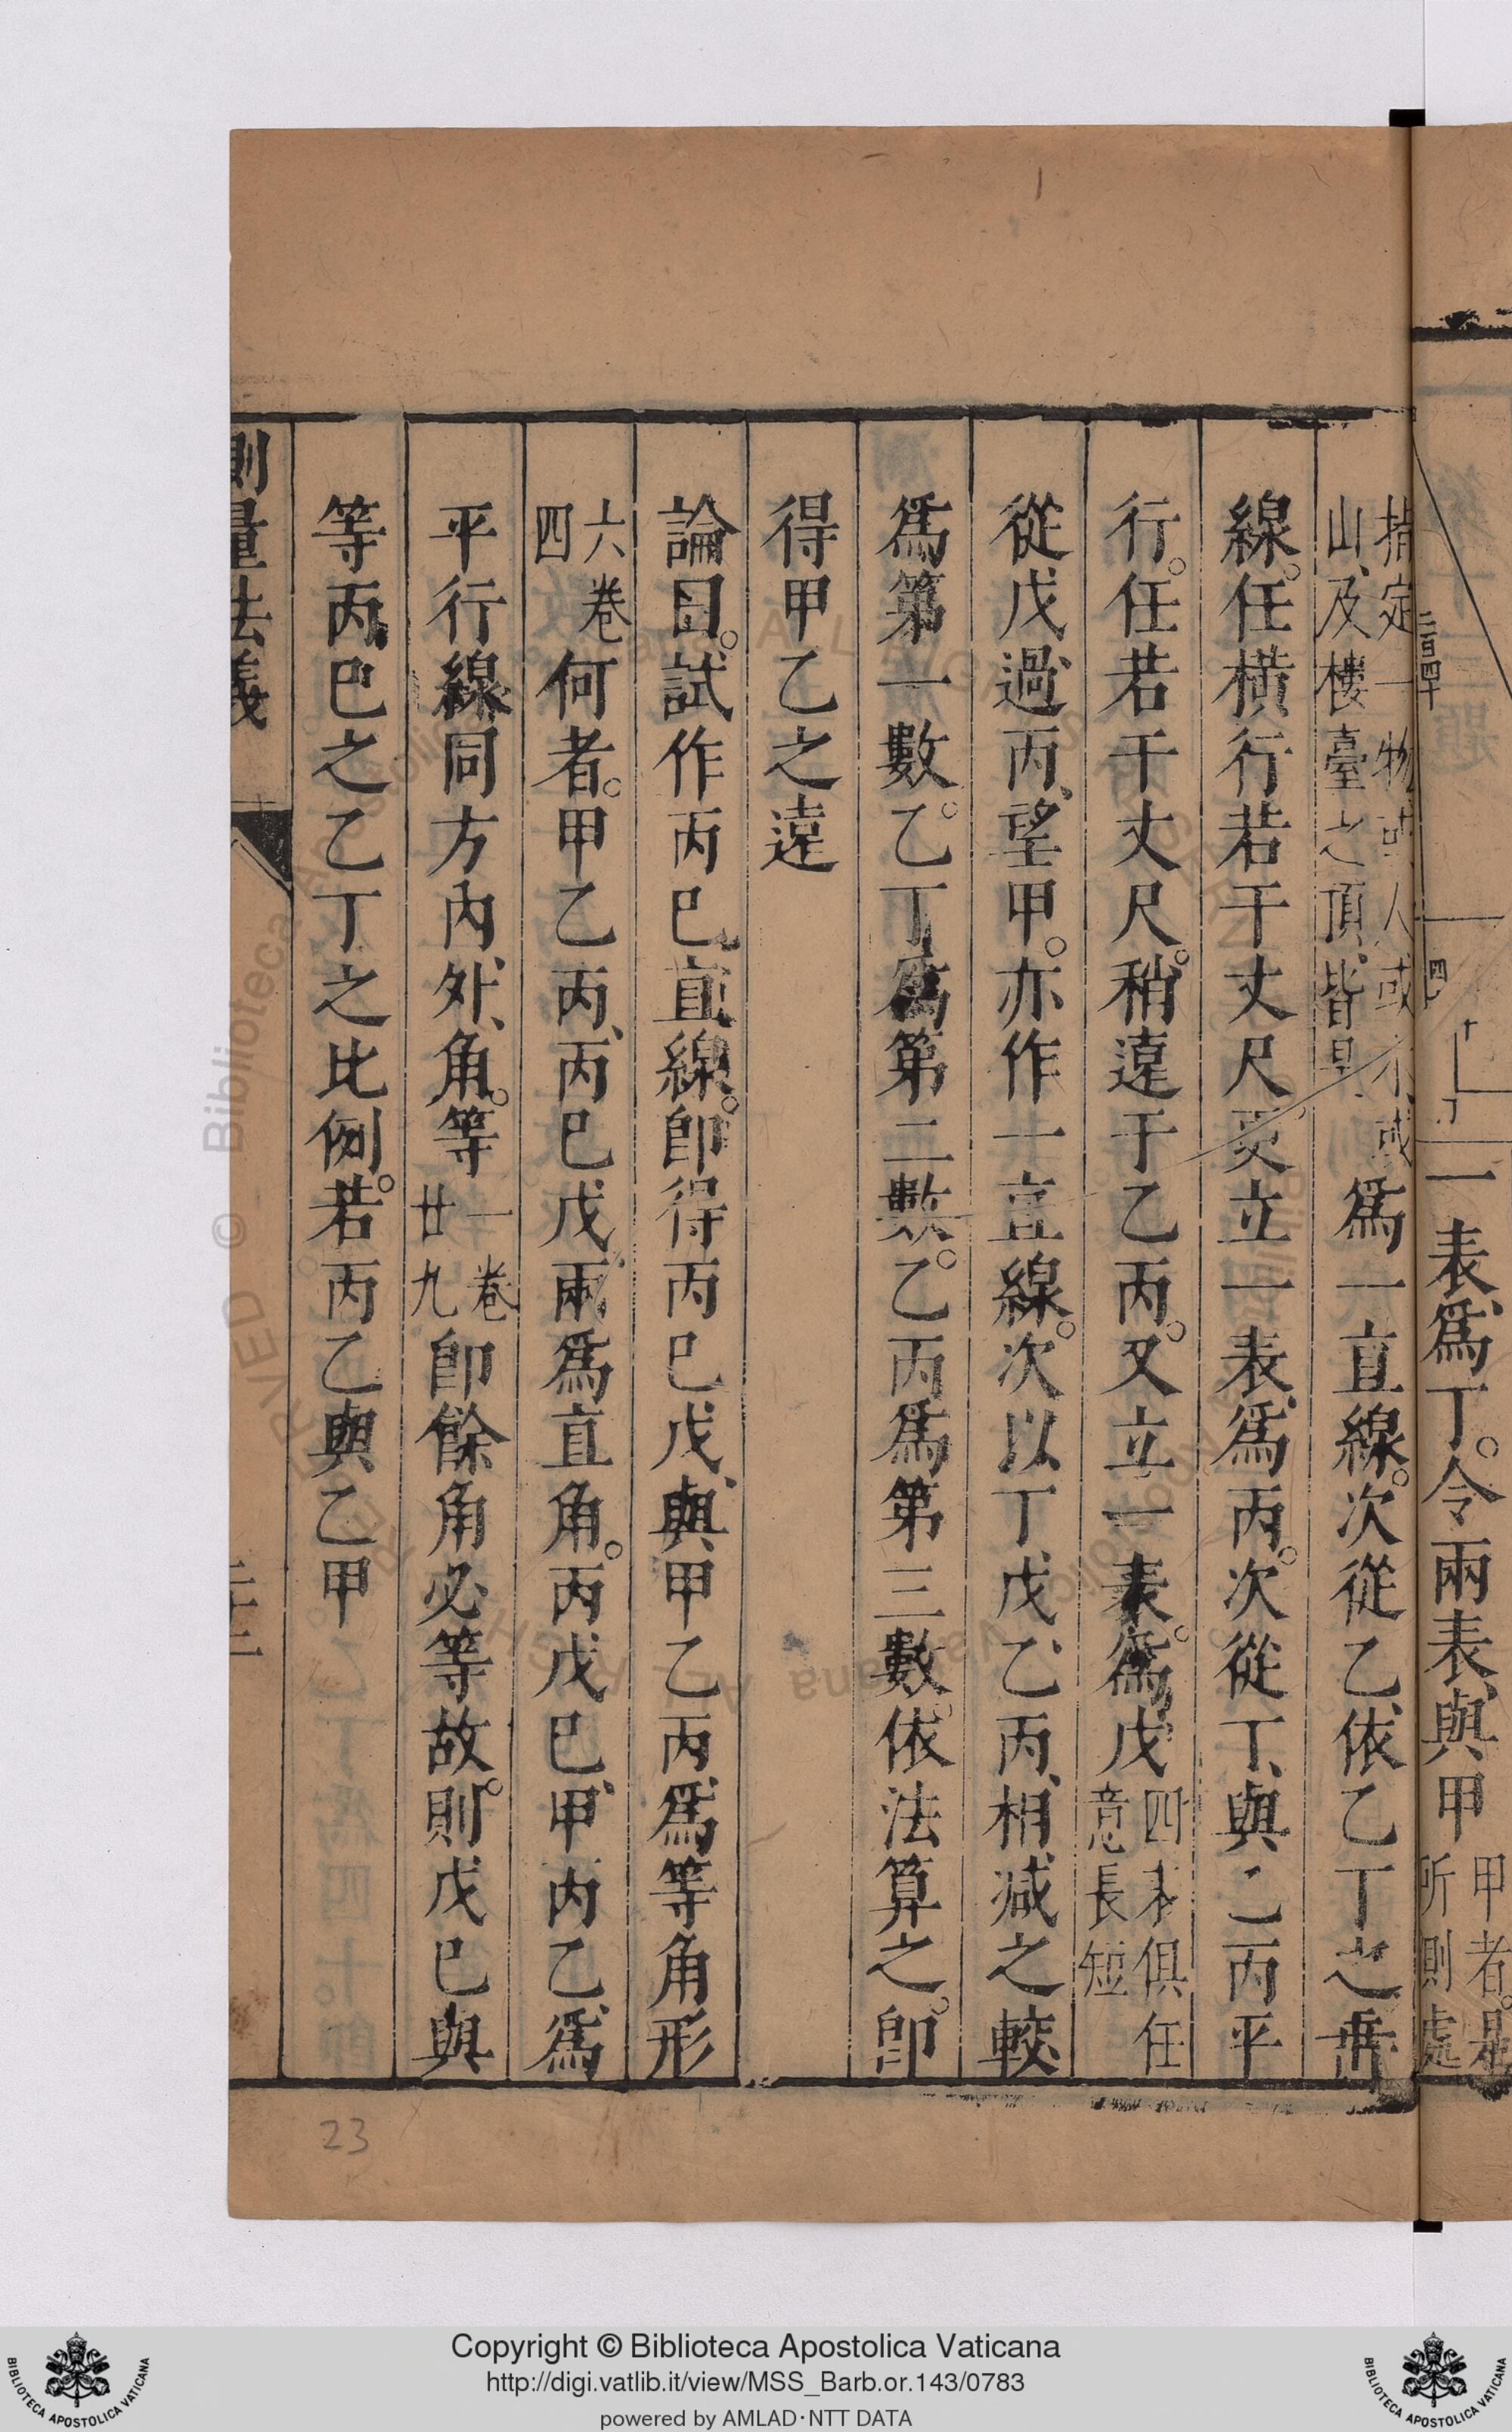 一表、爲丁。令兩表、與甲甲者。是所測處
指定一物或人或木或山、及樓臺之頂、皆是爲一直線。次從乙、依乙丁之垂
線。任橫行若干丈尺更立一表、爲丙。次從丁、與乙丙平
行。任若干丈尺。稍遠于乙丙。又立一表。爲戊四表俱任意長短
從戊過丙、望甲。亦作一直線。次以丁戊乙丙、相減之較
爲第一數。乙丁爲第二數。乙丙爲第三數。依法算之。卽
得甲乙之遠
論曰。試作丙巳直線。卽得丙巳戊、與甲乙丙、爲等角形
六卷四何者。甲乙丙、丙巳戊、兩爲直角。丙戊巳、甲丙乙、爲
平行線同方內、外、角。等一卷廿九卽餘角必等故。則戊巳與
等丙巳之乙丁之比例。若丙乙與乙甲
測量法義
二十三
23
Copyright © Biblioteca Apostolica Vaticana
http://digi.vatlib.it/view/MSS_Barb.or.143/0783
powered by AMLAD·NTT DATA
BIBLIOTECA APOSTOLICA VATICANA
BIBLIOTECA APOSTOLICA VATICANA